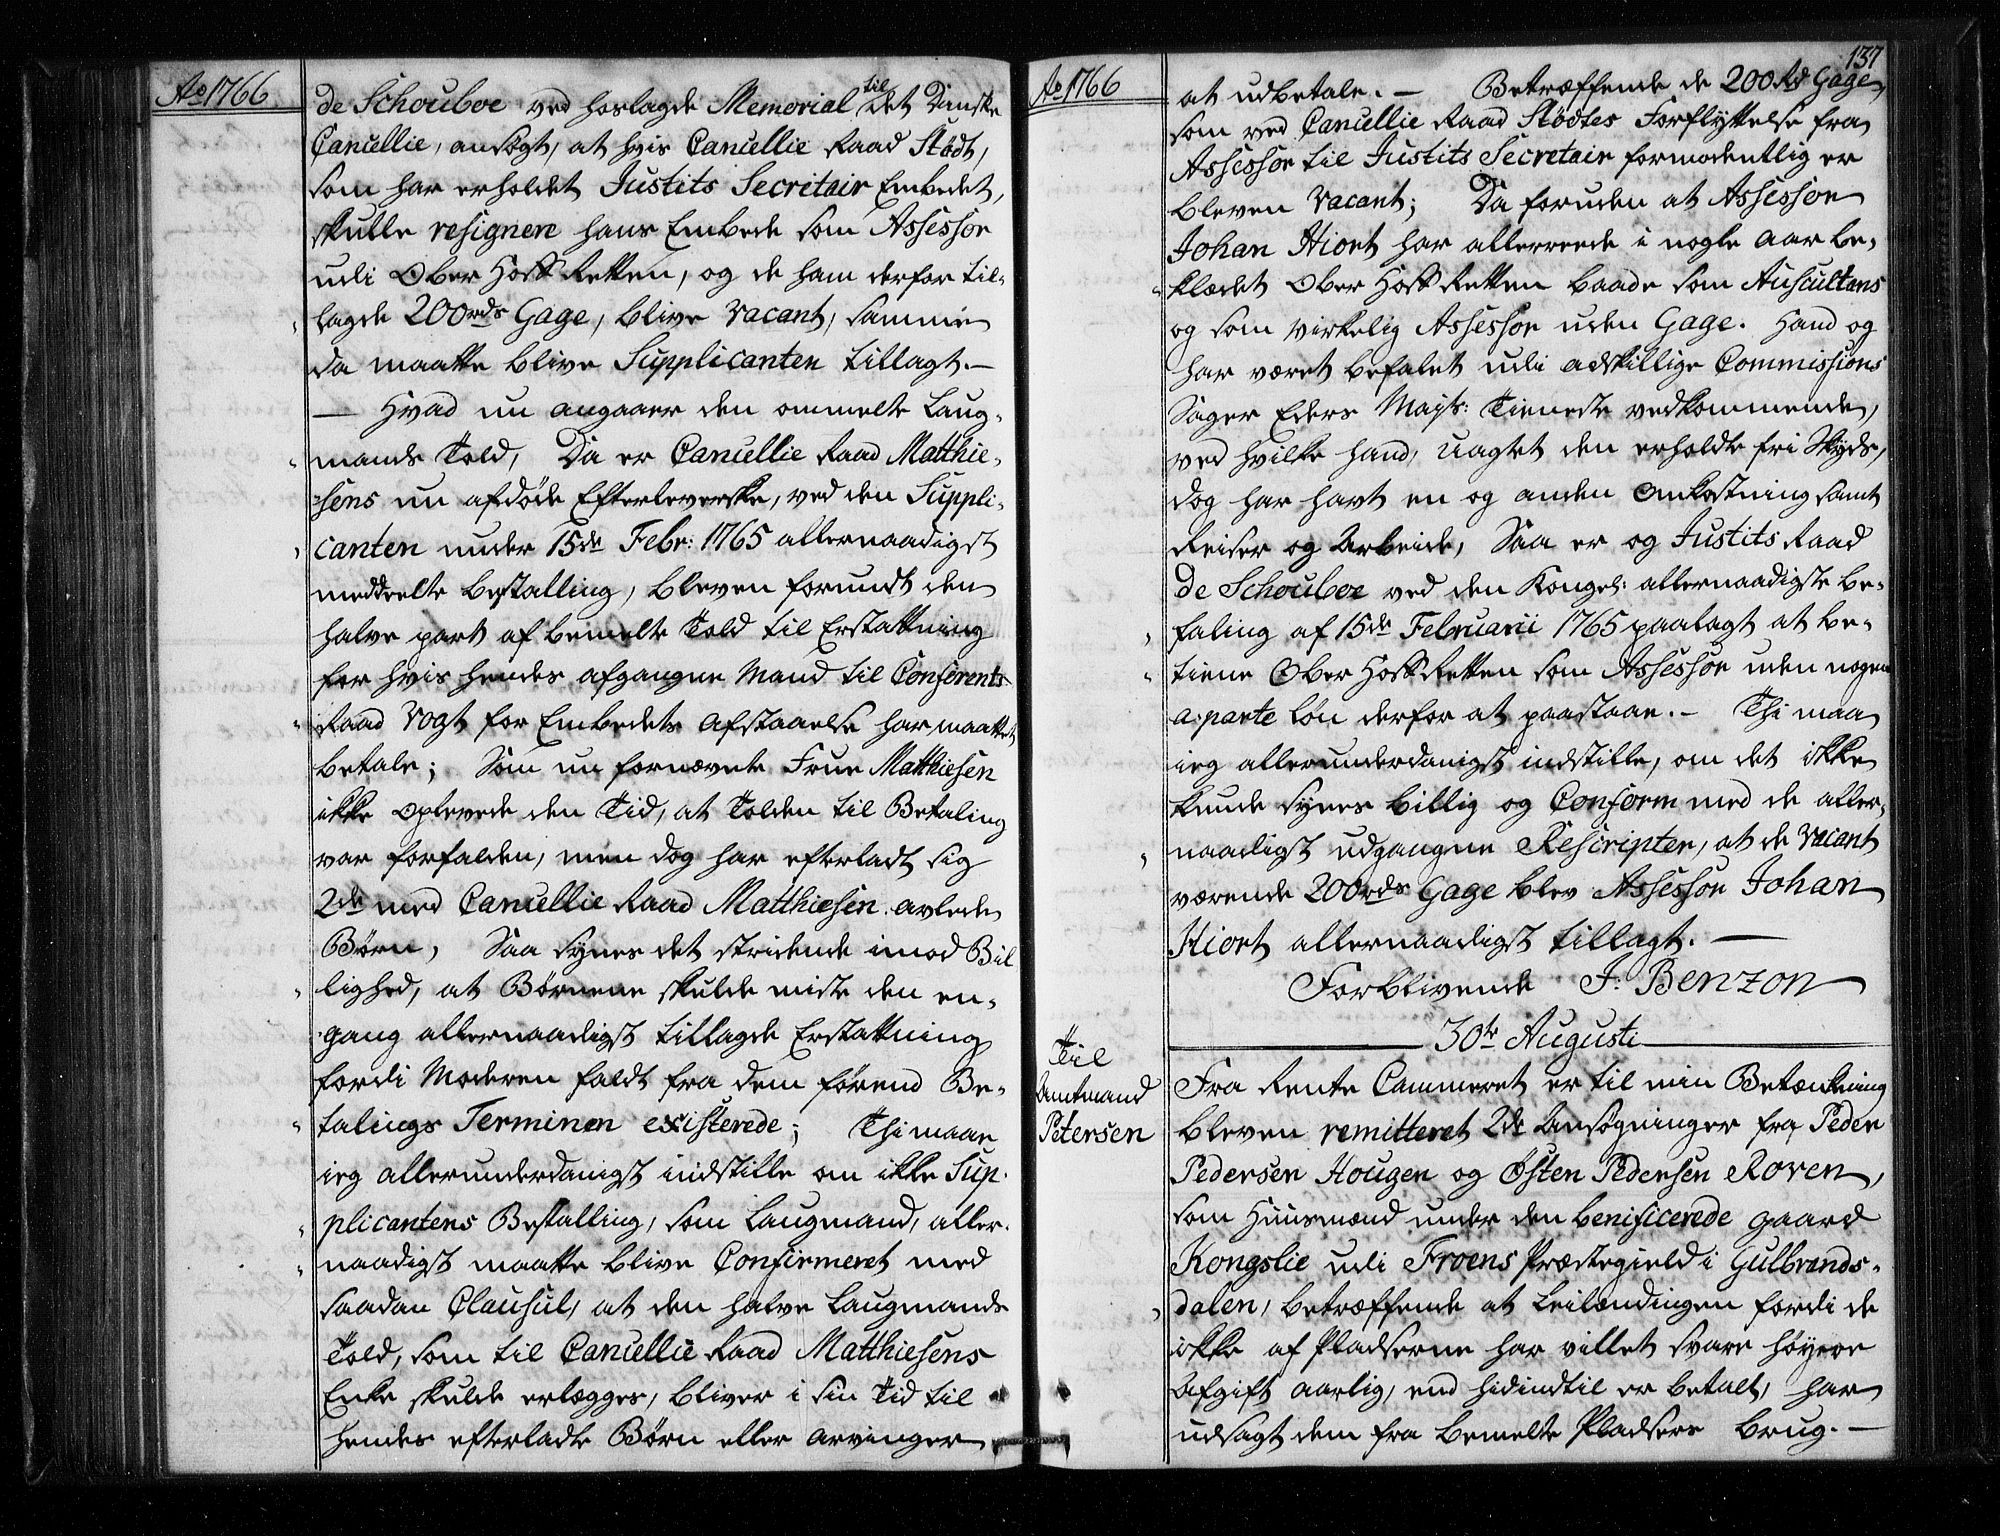 Ao 1766
de Schouboe ved hoslagde Memorial til Det Danske
Cancellie, ansøgt, at hvis Cancellie Raad Stødt,
som har erholdet Justits Secretair Embedet,
skulle resignere hans Embede som Assessor
udi Ober Hoff Retten, og de ham derfor til-
lagde 200rds Gage, blive vacant, samme
da maatte blive Supplicanten tillagt. —
— Hvad nu angaaer den ommelte Laug-
mands Told, Da er Cancellie Raad Matthie-
sens nu afdøde Efterleverske, ved den Suppli-
canten under 15de Febr: 1765 allernaadigst
meddeelte bestalling, bleven forundt den
halve part af bemelte Told til Erstattning
for hvis hendes afgangne Mand til Conferents
Raad Vogt for Embedets afstaaelse har maattet
betale; Som nu fornævnte Frue Matthiesen
ikke oplevede den Tid, at Tolden til Betaling
var forfalden, men dog har efterladt sig
2de med Cancellie Raad Matthiesen avlede
Børn, Saa synes det stridende imod Bil
lighed, at Børnene skulde miste den en-
gang allernaadigst tillagde Erstattning
fordi Moderen faldt fra dem førend Be-
talings Terminen existerede; Thi maae
ieg allerunderdanigst indstille om ikke Sup-
plicantens Bestalling, som Laugmand, aller-
naadigst maatte blive Confirmeret med
saadan Clausul, at den halve Laugmands
Told, som til Cancellie Raad Matthiesens
Enke skulde erlægges, bliver i sin Tid til
hendes efterladte Børn eller arvinger
Ao 1766
137
at udbetale. — Betræffende de 200 Rd Gage,
som ved Cancellie Raad Stødtes Forflyttelse fra
Assessor til Justits Secretair formodentlig er
bleven vacant; Da foruden at Assessor
Johan Hiort har allerreede i nogle Aar be-
klædet Ober Hoff Retten baade som Auscultans
og som virkelig Assessor uden Gage. Hand og
har været befalet udi adskillige Commissions
Sager Eders Majts: Tieneste vedkommende,
ved hvilke hand, uagtet den erholdte fri Skyds,
dog har havt en og anden Omkostning samt
Reiser og Arbeide, Saa er og Justits Raad
de Schouboe ved den Kongel: allernaadigste be-
faling af 15de Februarii 1765 paalagt at be-
tiene Ober Hoff Retten som Assessor uden nogen
a parte Løn derfor at paastaae. — Thi maa
ieg allerunderdanigst indstille, om det ikke
kunde synes billig og Conform med de aller-
naadigst udgangne Rescripter, at de vacant
værende 200rds Gage blev Assessor Johan
Hiort allernaadigst tillagt. —
Forblivende J: Benzon
30te Augusti
Til
Amtmand
Petersen
Fra Rente Cammeret er til min Betænkning
bleven remitteret 2de Ansøgninger fra Peder
Pedersen Hougen og Østen Pedersen Roven,
som Huusmænd under den benificerede gaard
Kongslie udi Froens Præstegield i Gulbrands-
dalen, betræffende at Leilændingen fordi de
ikke af Pladserne har villet svare høyere
Afgift aarlig, end hidindtil er betalt, har
udsagt dem fra bemelte Pladsers brug. —